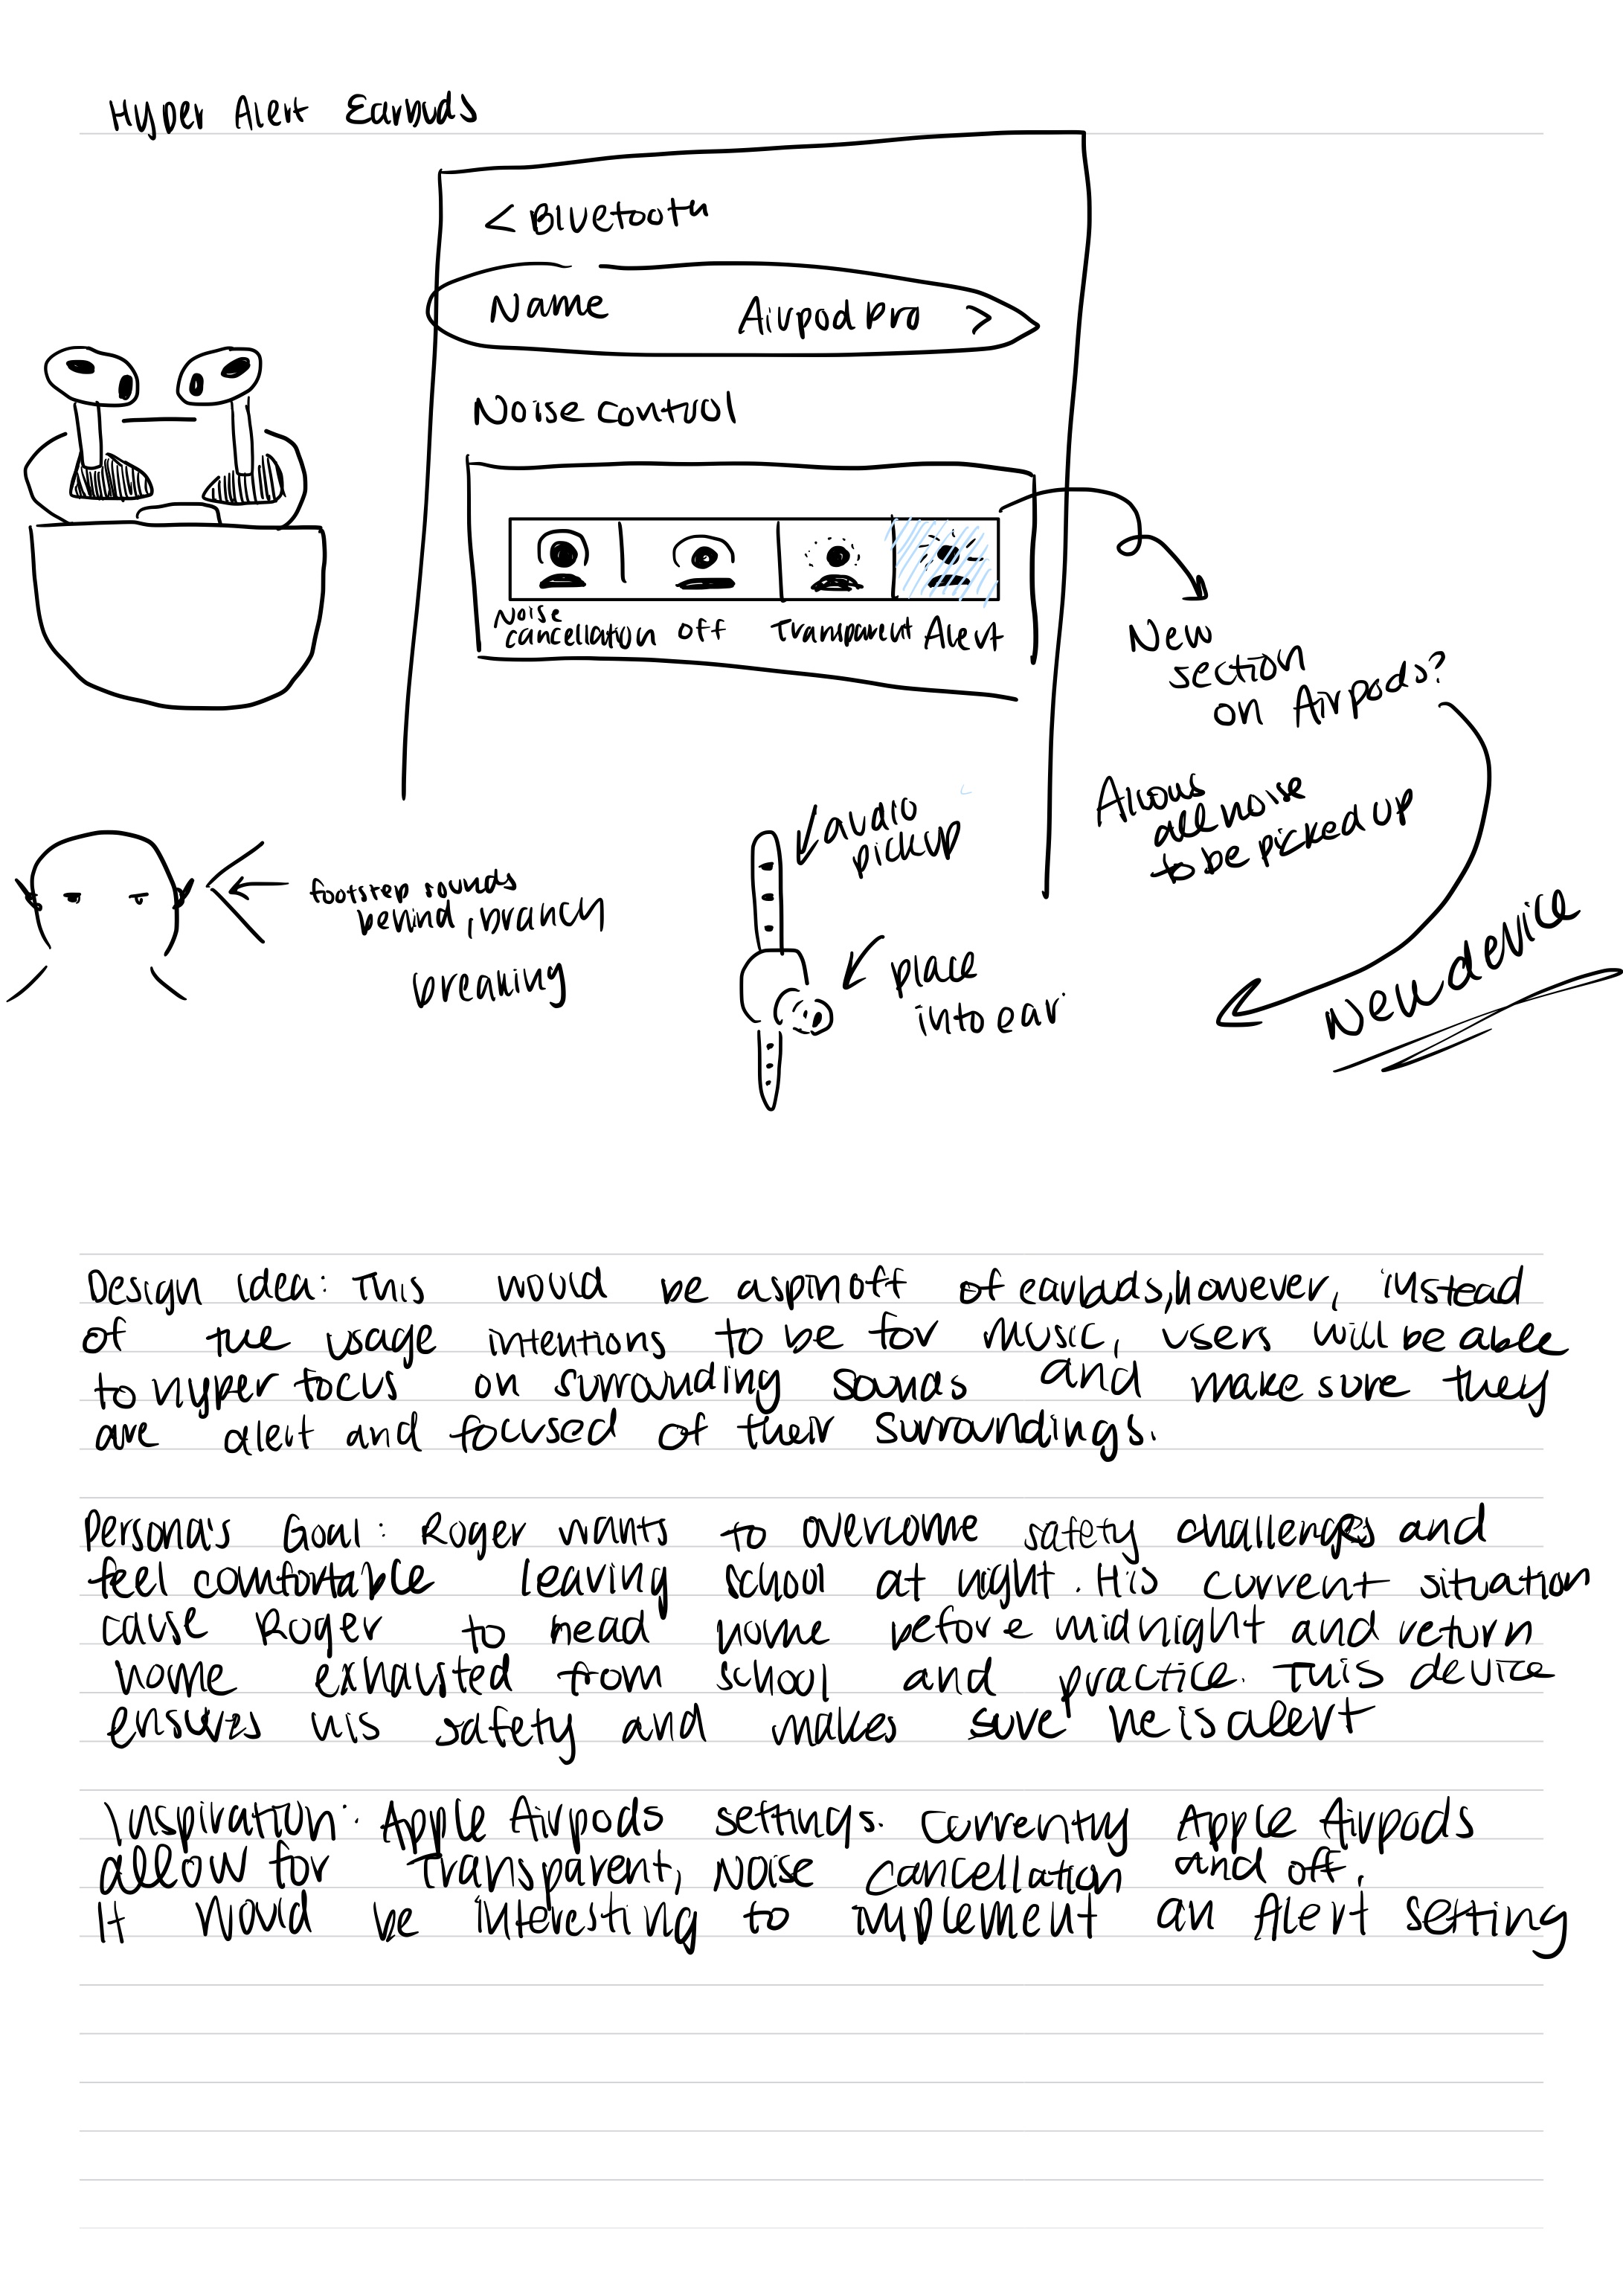 Hyper Alert Earbuds
< Bluetooth
Name Airpod Pro >
Noise control
Noise
cancellation off Transparent Alert
New
section
on Airpods?
Allows
all noise
to be picked up
New device
audio
pickup
place
into ear
footstep sounds
behind, branch
breaking
Design idea: This would be a spin off of earbuds, however, instead
of the usage intentions to be for music, users will be able
to hyper focus on surrounding sounds and make sure they
are alert and focused of their surroundings.
Persona's Goal: Roger wants to overcome safety challenges and
feel comfortable leaving school at night. His current situation
cause Roger to head home before midnight and return
home exhausted from school and practice. This device
ensures his safety and makes sure he is alert
Inspiration: Apple Airpods settings. Currently Apple Airpods
allow for Transparent, Noise cancellation and off.
It would be interesting to implement an Alert setting